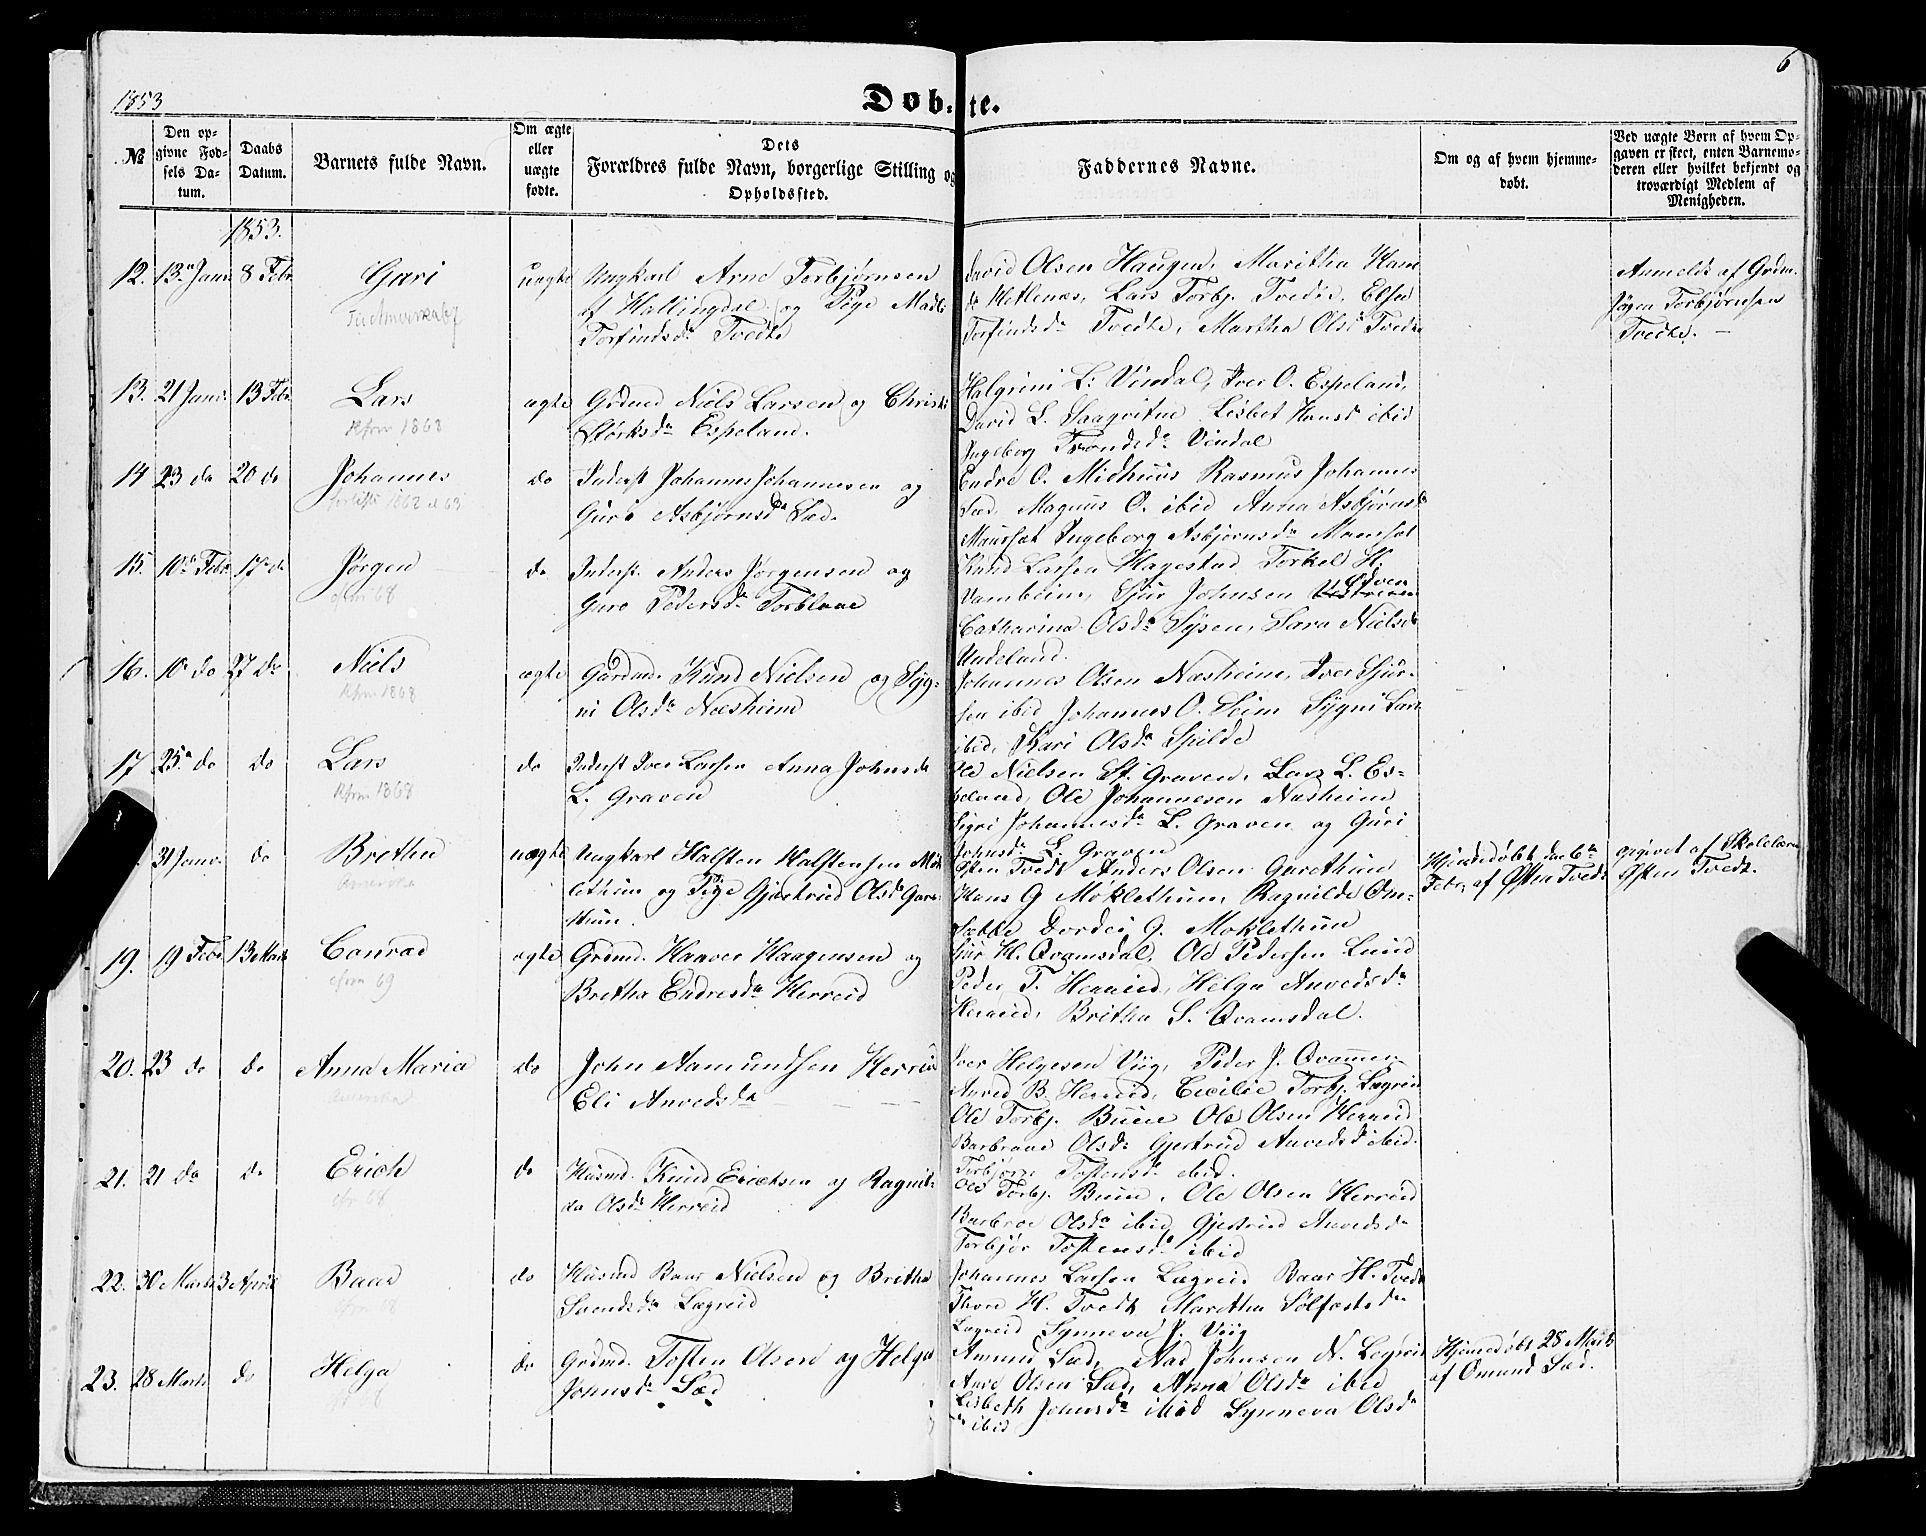 1853
Døb-te.
6
№
Den opgivne Fødsels Datum.
Daabs Datum.
Barnets fulde Navn.
Om ægte eller uægte fødte.
Dets Forældres fulde Navn, borgerlige Stilling og Opholdssted.
Faddernes Navne.
Om og af hvem hjemmedøbt.
Ved uægte Børn af hvem Opgaven er skeet, enten Barnemoderen eller hvilket bekjendt og troværdigt Medlem af Menigheden.
1853.
12. 13de Janr 8 Febr Gari uægte Ungkarl Arne Torbjørnsen
af Hallingdal og Pige Madli
Torfindsdr Tvedte
David Olsen Haugen, Maritha Hans
dr Hetlenæs, Lars Torbj. Tvedte, Elsed
Torfindsdr Tvedte, Martha Olsdr Tvedte
Anmeldt af Grdm.
Jøgen Torbjørnsen
Tvedte. —
13. 21 Janr. 13 Febr Lars ægte Grdmd Niels Larsen og Christi
Størksdr Espeland.
1868
Halgrim L. Vindal, Iver O. Espeland,
David L. Saaqvitne Lisbet Hansdr ibid
Ingeborg Trondsdr Vindal
14 23 do 20 do Johannes do Inderst Johannes Johannesen og
Guro Asbjørnsdr Sæd.
1862
Endre O. Midhuus Rasmus Johannes
Sæd Magnus O. ibid Anna Asbjørnsdr
Maursæt Ingeborg Asbjørnsdr Maursæt
15. 10de Febr. 17 do Jørgen do Inderst. Anders Jørgensen og
Guro Pedersdr Torblaae
68
Knud Larsen Hagestad Torkel H.
Vambeim, Sjur Johnsen
Catharina Olsdr Sysen, Sara Nielsdr
Undeland.
16. 10 do 27 do Niels ægte Gårdmd. Knud Nielsen og Syg-
ni Olsdr Næsheim
1868
Johannes Olsen Næsheim, Iver Sjur-
sen ibid Johannes O. Seim Sygni Lars
ibid, Kari Olsdr Spilde
17 25de do do Lars do Inderst Iver Larsen Anna Johnsdr
L. Graven
1868
Ole Nielsen St. Graven, Lars L. Es-
peland, Ole Johannesen Næsheim
Sigri Johannesdr L. Graven og Guri
Johnsdr L. Graven
31 Janr. do Bretha uægte Ungkarl Halsten Halstensen Mok
lethun og Pige Gjertrud Olsdr Gare-
thun.
Amerika
Østen Tvedt Anders Olsen Garethun
Hans G Moklethun, Ragnilde Om-
sætte Dordei G. Moklethun
Hjemmedøbt den 6te
Febr. af Østen Tvedt
opgivet af Skolelærer
Østen Tvedt.
19. 19 Febr 13 Marts Conrad ægte Grdmd. Haavor Haagensen og
Bretha Endresdr Herreid
69
Sjur H. Qvamsdal, Ole Pedersen Lund
Peder T. Herreid, Helga Anvedsdr
Herreid, Britha S. Qvamsdal.
20. 23 do do Anna Maria do John Aamundsen Herreid
Eli Anvedsdr — —
Amerika
Iver Helgesen Viig, Peder J. Qvammen
Anved B. Herreid, Cecilie Torbj. Lægreid
Ole Torbj. Buen Ole Olsen Herreid
Barbraae Olsdr Gjertrud Anvedsdr ibid.
Torbjør Tostensdr ibid.
21. 21 do do Erich do Husmd. Knud Erichsen og Ragnil-
da Olsdr Herreid
68
Ole Torbj. Buen, Ole Olsen Herreid
Barbroe Olsdr ibid, Gjertrud Anvedsdr
Torbjør Tostensdr ibid
22. 30 Marts 3 April Baar do Husmd Baar Nielsen og Britha
Svendsdr Lægreid
68
Johannes Larsen Lægreid Baar H. Tvedt
Thore H. Tvedt Maritha Solfæstsdr
Lægreid Synneva P. Viig
23. 28 Marts do Helga do Grdmd. Tosten Olsen og Helga
Johnsdr Sæd
Amund Sæd, Aad Johnsen N. Legreid
Arne Olsen Sæd, Anna Olsdr ibid
Lisbeth Johnsdr ibid Synneva Olsdr
ibid
Hjemmedøbt 28 Marts
af Omund Sæd.